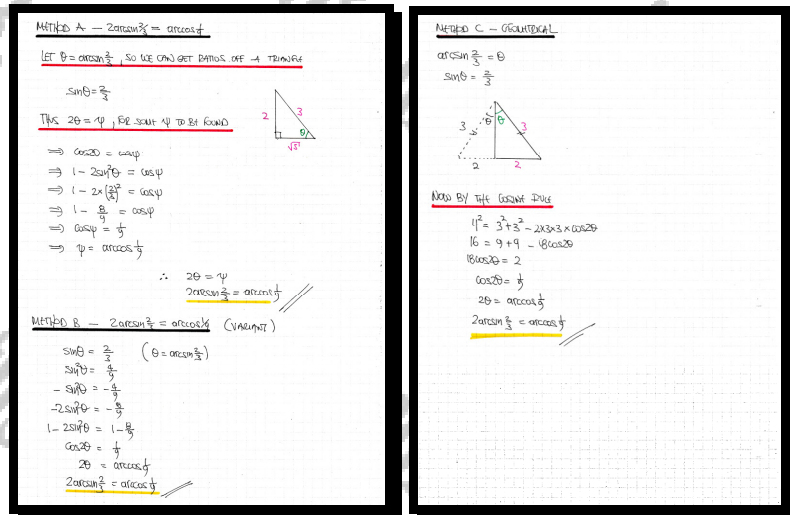 METHOD A - 2arcsin 2/3 = arccos 1/9
LET θ = arcsin 2/3, SO WE CAN GET RATIOS OFF A TRIANGLE
sinθ = 2/3
2
3
θ
√5
THUS 2θ = ψ, FOR SOME ψ TO BE FOUND
⇒ cos2θ = cosψ
⇒ 1 - 2sin²θ = cosψ
⇒ 1 - 2×(2/3)² = cosψ
⇒ 1 - 8/9 = cosψ
⇒ cosψ = 1/9
⇒ ψ = arccos 1/9
∴ 2θ = ψ
2arcsin 2/3 = arccos 1/9
METHOD B - 2arcsin 2/3 = arccos 1/9 (VARIANT)
sinθ = 2/3 (θ = arcsin 2/3)
sin²θ = 4/9
- sin²θ = - 4/9
-2sin²θ = - 8/9
1 - 2sin²θ = 1 - 8/9
cos2θ = 1/9
2θ = arccos 1/9
2arcsin 2/3 = arccos 1/9
METHOD C - GEOMETRICAL
arcsin 2/3 = θ
sinθ = 2/3
θ θ
3 3
2 2
NOW BY THE COSINE RULE
4² = 3² + 3² - 2×3×3×cos2θ
16 = 9 + 9 - 18cos2θ
18cos2θ = 2
cos2θ = 1/9
2θ = arccos 1/9
2arcsin 2/3 = arccos 1/9